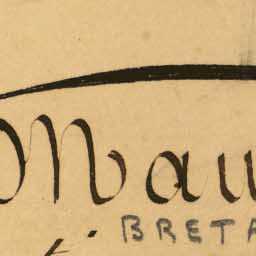 Mau
BRETA